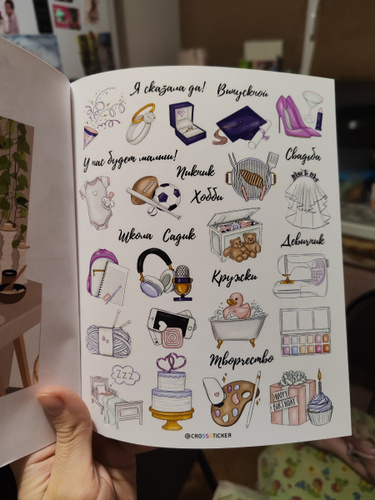 Я сказала да! Выпускной
У нас будет малыш!
Пикник
Свадьба
Хобби
Школа Садик
Девичник
Кружки
Творчество
ZZZ
HAPPY
BIRTHDAY
@CROSSSTICKER